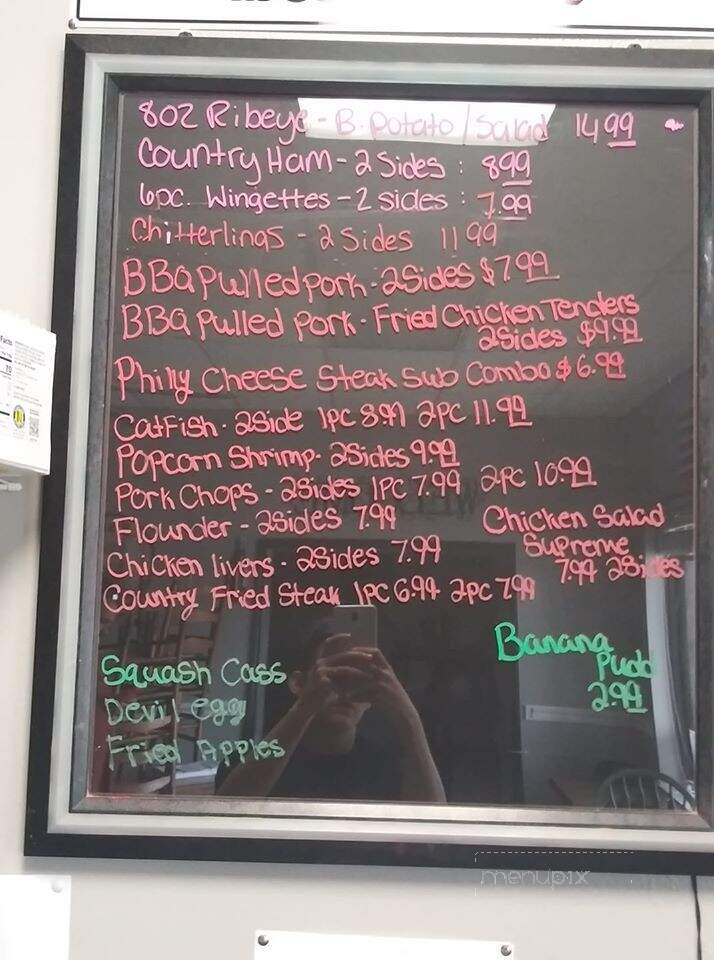 8oz Ribeye - B. potato / Salad 14 99
Country Ham - 2 Sides : 899
6pc. Wingettes - 2 sides : 7.99
Chitterlings - 2 Sides 11 99
BBQ Pulled pork - 2 Sides $7 99
BBQ Pulled Pork - Fried Chicken Tenders
2 Sides $9.99
Philly Cheese Steak Sub Combo $6.99
Catfish - 2 Side 1pc 8.99 2pc 11.99
Popcorn Shrimp - 2 Sides 9.99
Pork Chops - 2 Sides 1pc 7.99 2pc 10.99
Flounder - 2 sides 7.99
Chicken Salad
Supreme
7.99 2 Sides
Chicken livers - 2 Sides 7.99
Country Fried Steak 1pc 6.99 2pc 7.99
Banana
Pudd
2.99
Squash Cass
Devil egg
Fried Apples
menupix